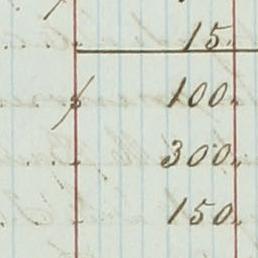 15.
100.
300.
150.